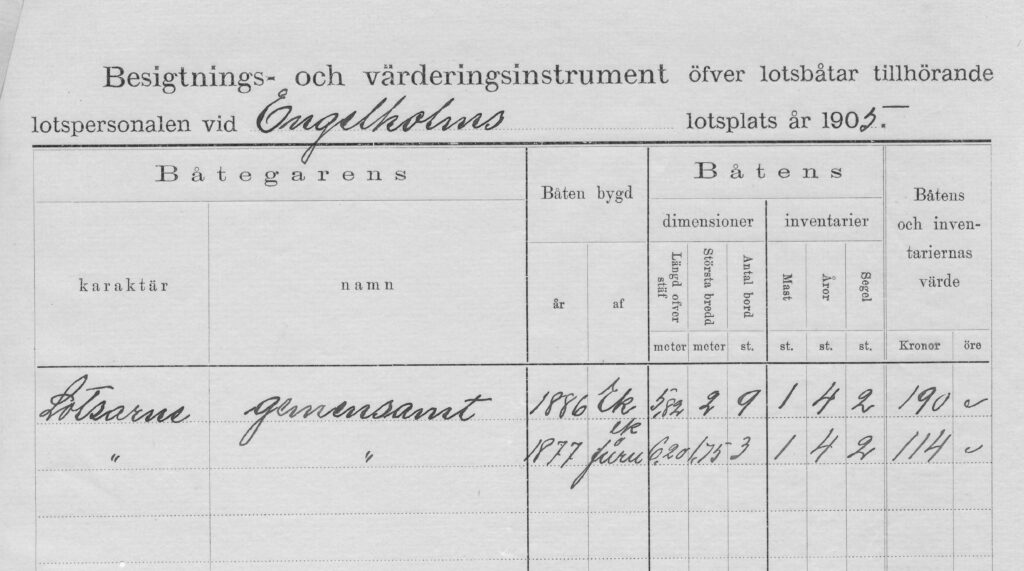 Besigtnings- och värderingsinstrument öfver lotsbåtar tillhörande
lotspersonalen vid Engelholms lotsplats år 1905.
Båtegarens Båten bygd Båtens Båtens och inventariernas värde
dimensioner inventarier
karaktär namn år af Längd öfver stäf Största bredd Antal bord Mast Åror Segel
meter meter st. st. st. st. Kronor öre
Lotsarne gemensamt 1886 Ek 5,82 2 9 1 4 2 190 "
" " 1877 ek furu 6,20 1,75 3 1 4 2 114 "